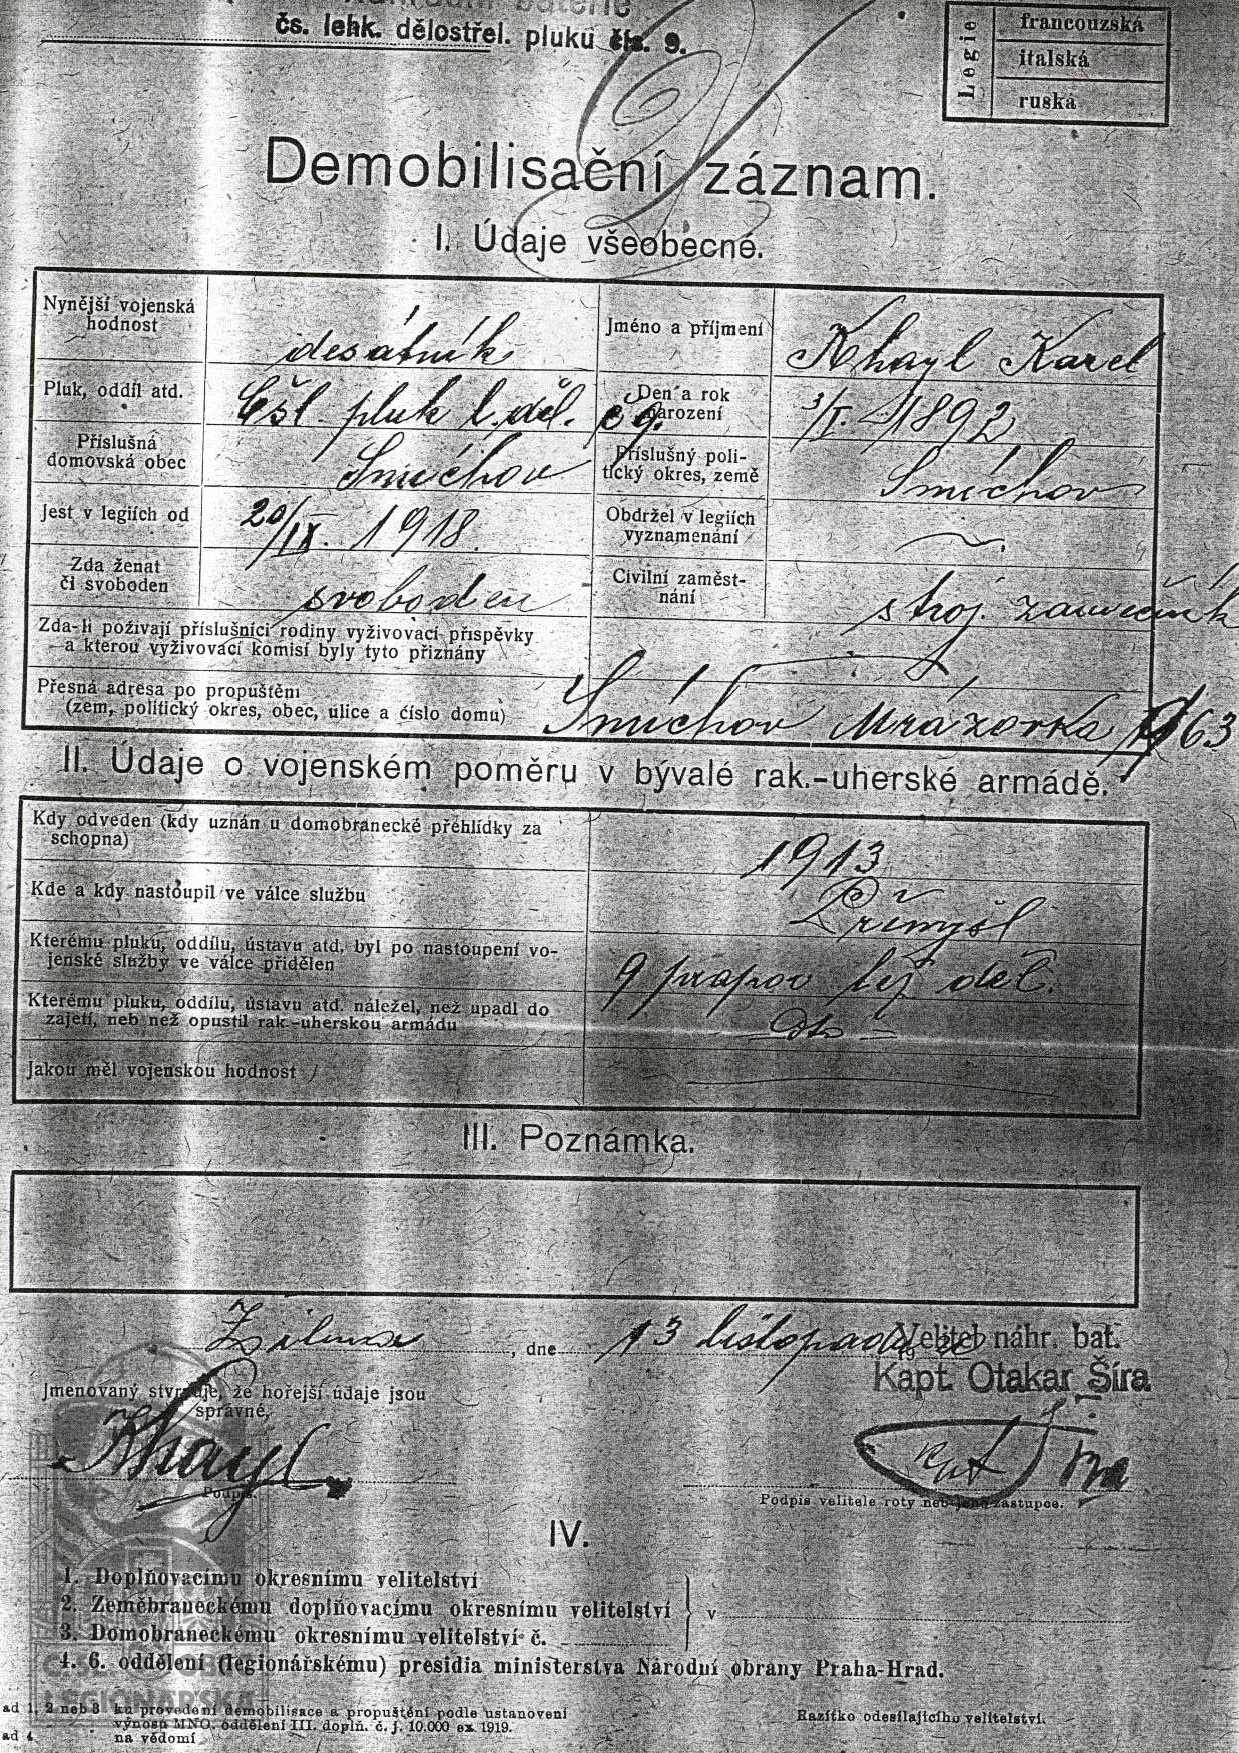 čs. lehk. dělostřel. pluku čís. 9.
Legie
francouzská
italská
ruská
Demobilisační záznam.
I. Údaje všeobecné.
Nynější vojenská hodnost
desátník
Jméno a příjmení
Khayl Karel
Pluk, oddíl atd.
Čsl. pluk l. děl. č 9.
Den a rok narození
3/I. 1892
Příslušná domovská obec
Smíchov
Příslušný politický okres, země
Smíchov
Jest v legiích od
20/IX. 1918.
Obdržel v legiích vyznamenání
Zda ženat či svoboden
svoboden
Civilní zaměstnání
stroj. zámečník
Zda-li požívají příslušníci rodiny vyživovací příspěvky
a kterou vyživovací komisí byly tyto přiznány
Přesná adresa po propuštění
(zem, politický okres, obec, ulice a číslo domu)
Smíchov Mrázovka
II. Údaje o vojenském poměru v bývalé rak.-uherské armádě.
Kdy odveden (kdy uznán u domobranecké přehlídky za
schopna)
1913
Kde a kdy nastoupil ve válce službu
Přemyšl
Kterému pluku, oddílu, ústavu atd. byl po nastoupení vo-
jenské služby ve válce přidělen
9 prapor těž děl.
Kterému pluku, oddílu, ústavu atd. náležel, než upadl do
zajetí, neb než opustil rak.-uherskou armádu
- dto -
Jakou měl vojenskou hodnost
III. Poznámka.
Žilina, dne 13 listopadu
Velitel náhr. bat.
Kapt. Otakar Šíra
Jmenovaný stvrzuje, že hořejší údaje jsou
správné,
Khayl
Podpis
kpt Šíra
Podpis velitele roty neb jeho zástupce.
IV.
1. Doplňovacímu okresnímu velitelství
2. Zeměbraneckému doplňovacímu okresnímu velitelství
3. Domobraneckému okresnímu velitelství č.
v
4. 6. oddělení (legionářskému) presidia ministerstva Národní obrany Praha-Hrad.
ad 1, 2 neb 3 ku provedení demobilisace a propuštění podle ustanovení
výnosu MNO. oddělení III. doplň. č. j. 10.000 ex 1919.
ad 4. na vědomí
Razítko odesílajícího velitelství.
LEGIONÁŘSKÁ